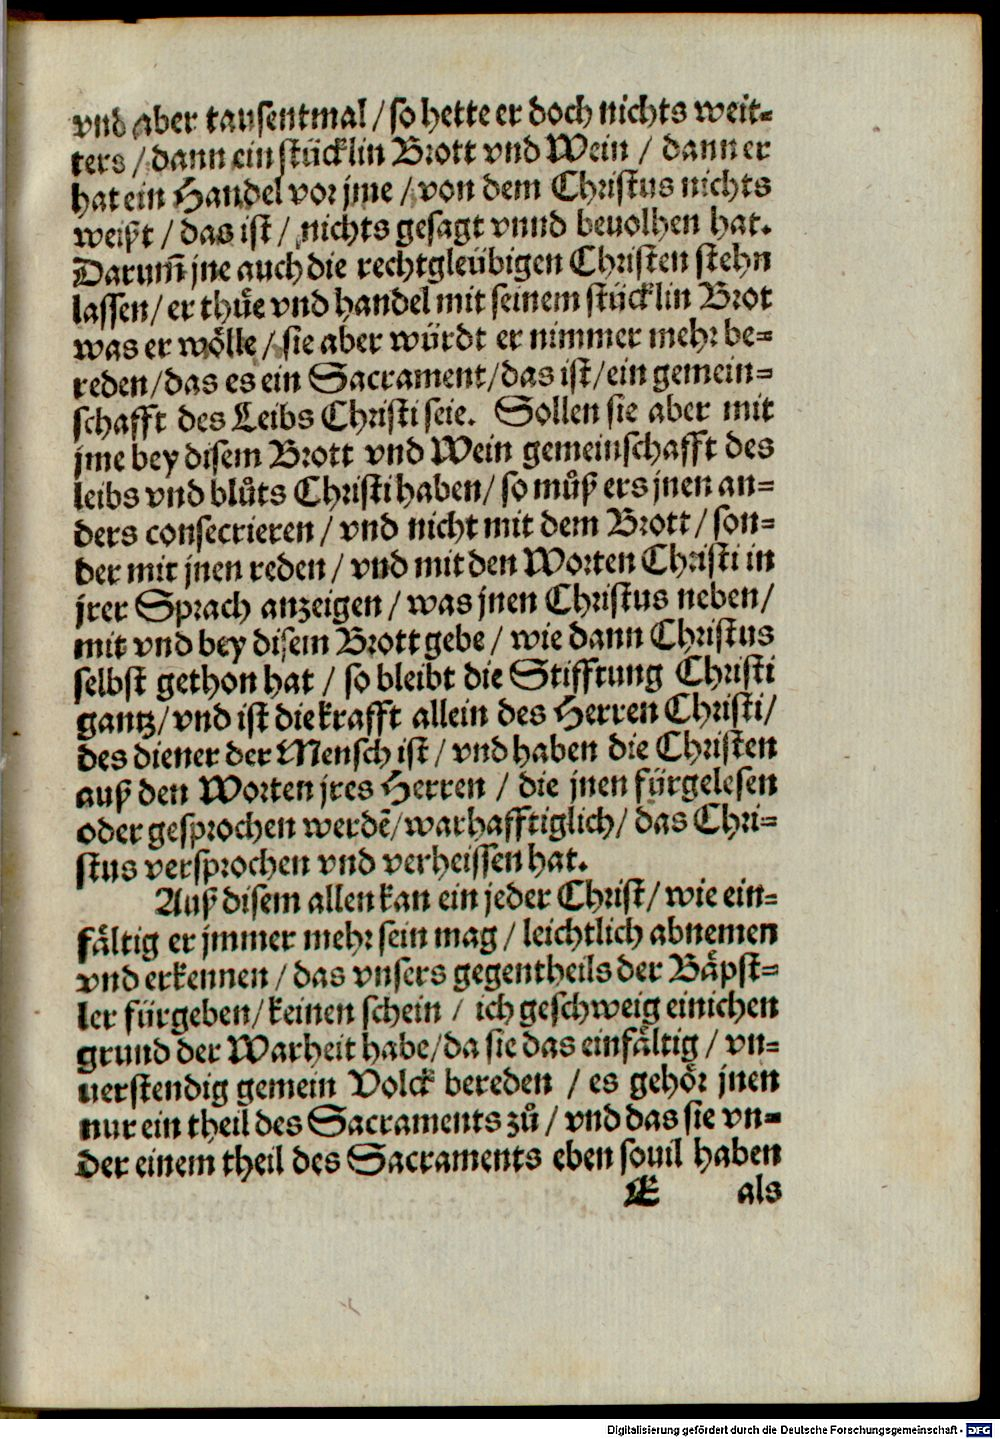 vnd aber tausentmal / so hette er doch nichts weit-
ters / dann ein stücklin Brott vnd Wein / dann er
hat ein Handel vor jme / von dem Christus nichts
weißt / das ist / nichts gesagt vnnd beuolhen hat.
Darum̃ jne auch die rechtgleübigen Christen stehn
lassen / er thüe vnd handel mit seinem stücklin Brot
was er wölle / sie aber würdt er nimmer mehr be-
reden / das es ein Sacrament / das ist / ein gemein-
schafft des Leibs Christi seie. Sollen sie aber mit
jme bey disem Brott vnd Wein gemeinschafft des
leibs vnd blůts Christi haben / so můß ers jnen an-
ders consecrieren / vnd nicht mit dem Brott / son-
der mit jnen reden / vnd mit den Worten Christi in
jrer Sprach anzeigen / was jnen Christus neben /
mit vnd bey disem Brott gebe / wie dann Christus
selbst gethon hat / so bleibt die Stifftung Christi
gantz / vnd ist die krafft allein des Herren Christi /
des diener der Mensch ist / vnd haben die Christen
auß den Worten jres Herren / die jnen fürgelesen
oder gesprochen werdẽ / warhafftiglich / das Chri-
stus versprochen vnd verheissen hat.
Auß disem allen kan ein jeder Christ / wie ein-
fältig er jmmer mehr sein mag / leichtlich abnemen
vnd erkennen / das vnsers gegentheils der Bäpst-
ler fürgeben / keinen schein / ich geschweig einichen
grund der Warheit habe / da sie das einfältig / vn-
uerstendig gemein Volck bereden / es gehör jnen
nur ein theil des Sacraments zů / vnd das sie vn-
der einem theil des Sacraments eben souil haben
E als
Digitalisierung gefördert durch die Deutsche Forschungsgemeinschaft - DFG